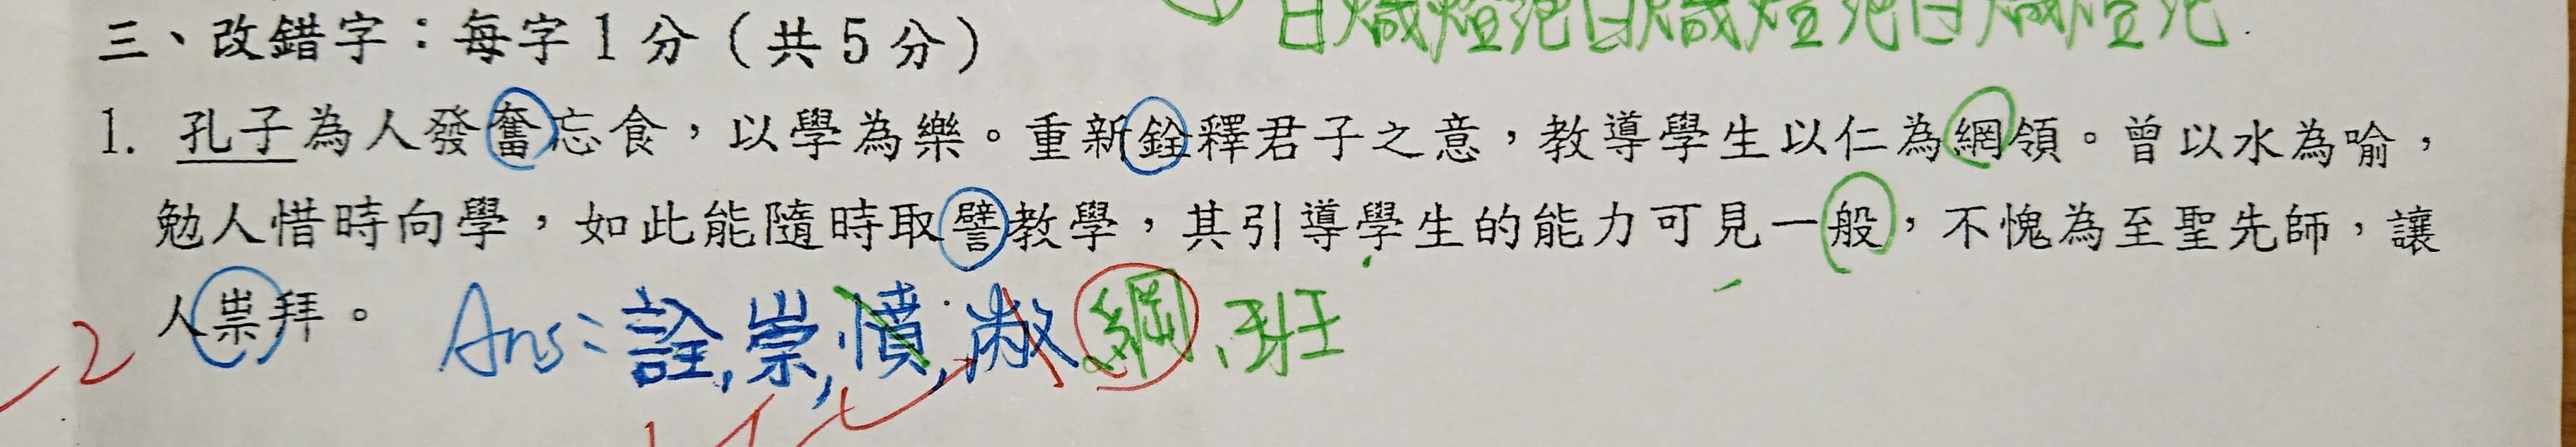 白熾燈泡白熾燈泡白熾燈泡
三、改錯字：每字1分（共5分）
1. 孔子為人發奮忘食，以學為樂。重新銓釋君子之意，教導學生以仁為網領。曾以水為喻，
勉人惜時向學，如此能隨時取譬教學，其引導學生的能力可見一般，不愧為至聖先師，讓
人祟拜。
Ans：詮,崇,憤, 綱、班
-2